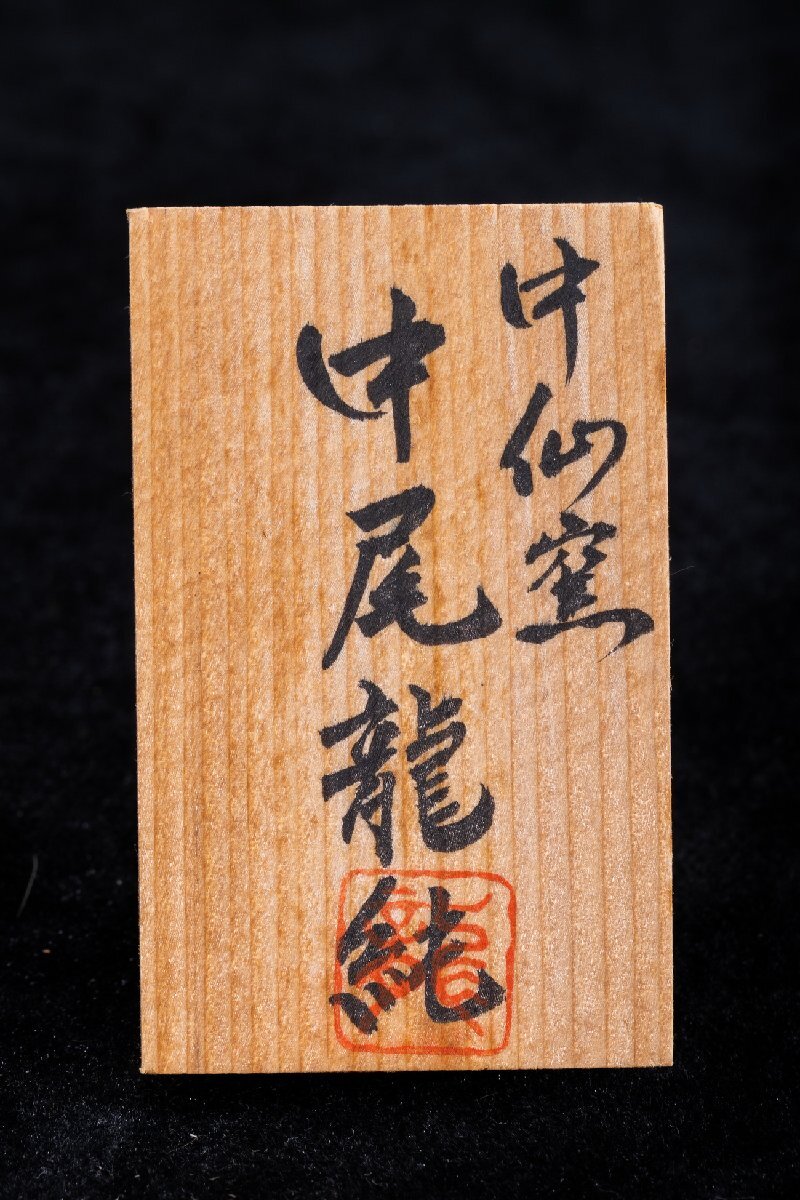 中仙窯
中尾龍純